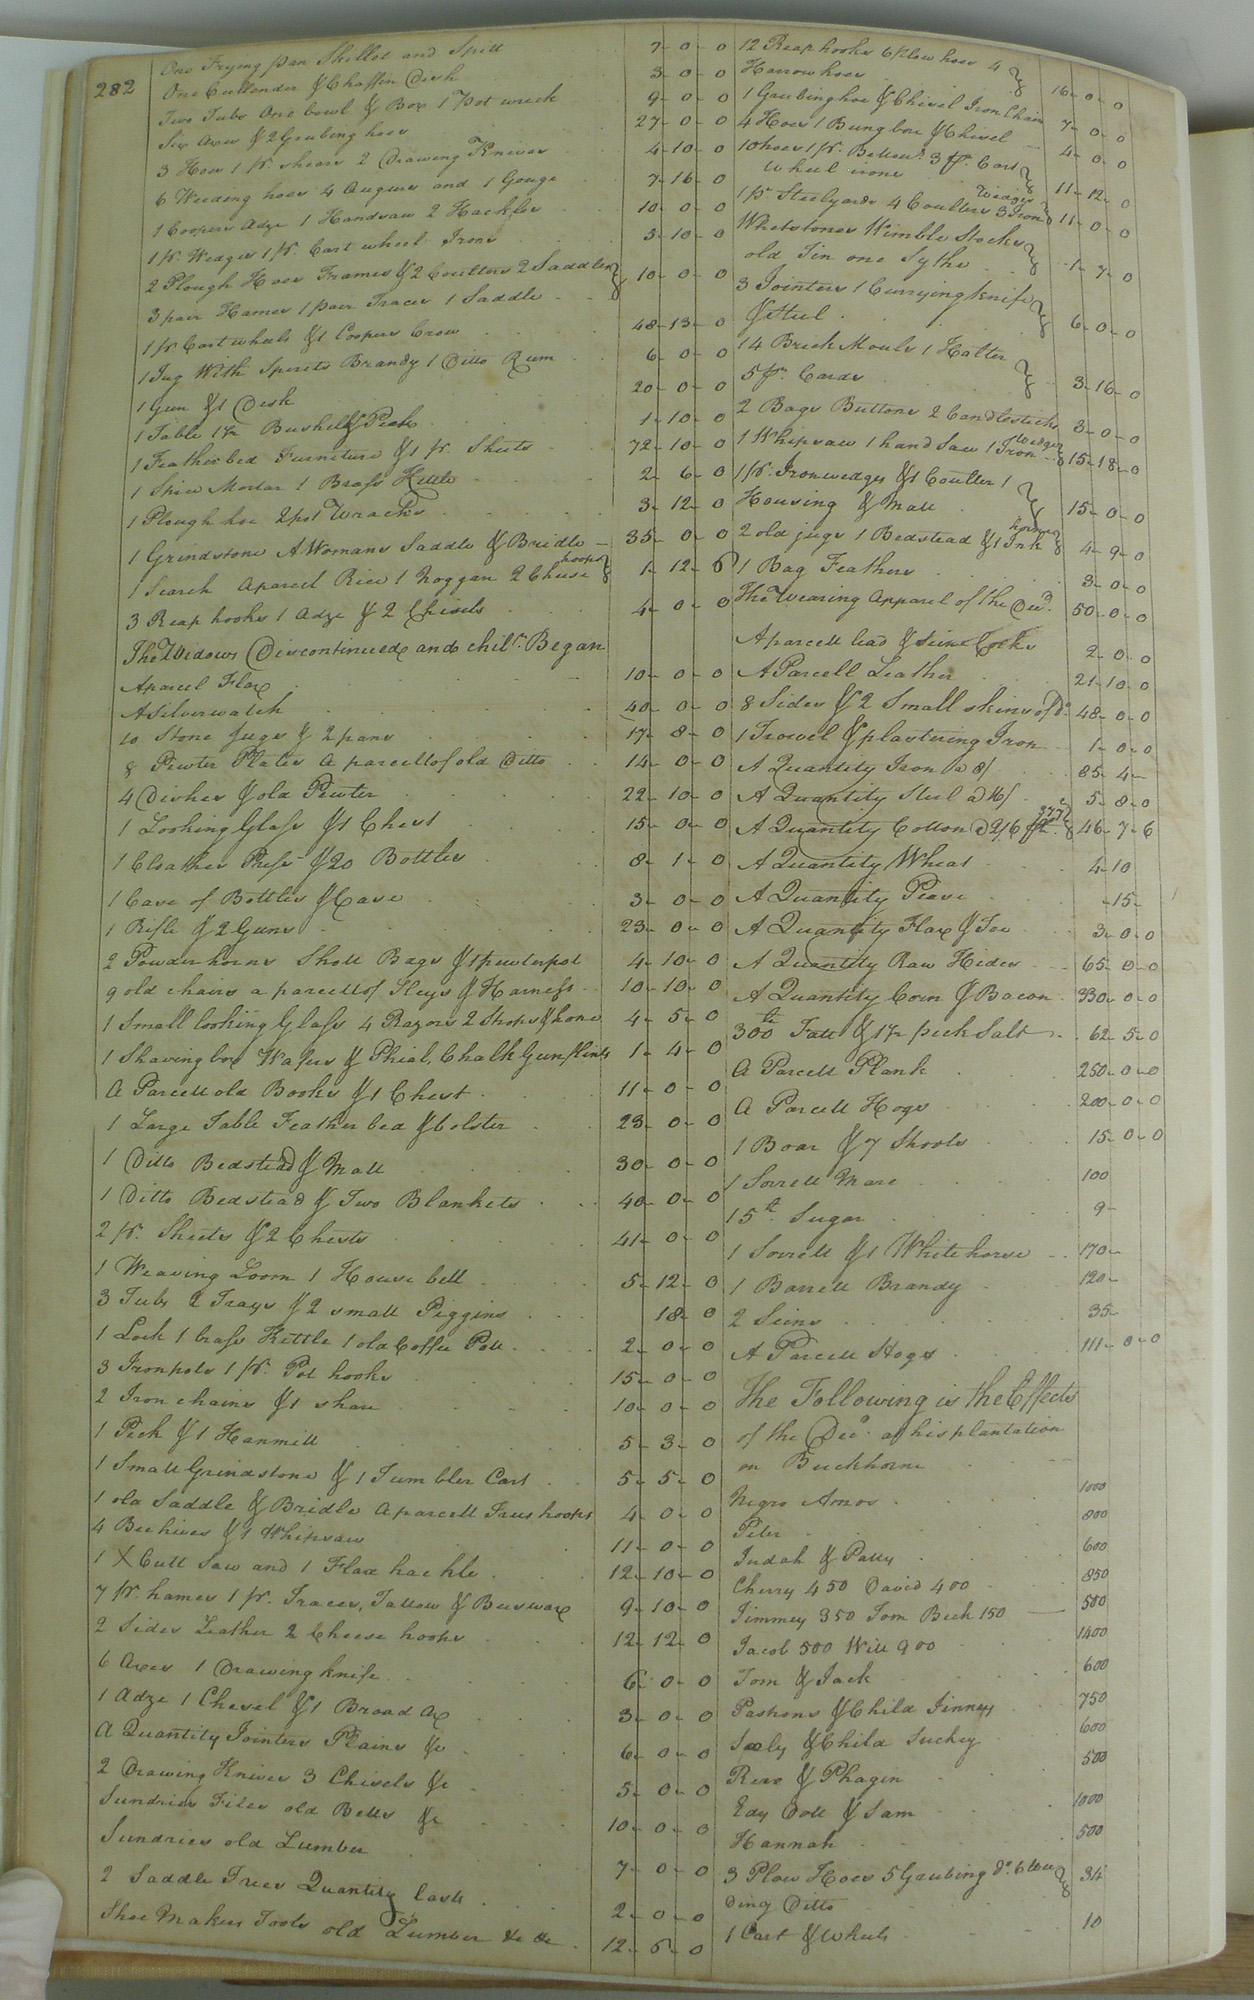 282
One Frying pan Skillet and Spitt 7-0-0
One Cullender & Chaffin Dish 3-0-0
Two Tubs One bowl & Box 1 Pot wrack 9-0-0
Six Axes & 2 Grubing hoes 27-0-0
3 Hoes 1 pr. shears 2 Drawing Knives 4-10-0
6 Weeding hoes 4 Augurs and 1 Gouge 7-16-0
1 Coopers Adze 1 Handsaw 2 Hackles 10-0-0
1 pr. Wedges 1 pr. Cart wheel Irons 3-10-0
2 Plough Hoes Frames & 2 Coulters 2 Saddles
3 pair Hames 1 pair Traces 1 Saddle 10-0-0
1 pr. Cart wheels & 1 Coopers Crow 48-13-0
1 Jug With Spirits Brandy 1 Ditto Rum 6-0-0
1 Gun & 1 Desk 20-0-0
1 Table 1/2 Bushell & Peck 1-10-0
1 Feather bed Furniture & 1 pr. Sheets 72-10-0
1 Spice Mortar 1 Brass Kettle 2-6-0
1 Plough hoe 2 pot Wracks 3-12-0
1 Grindstone A Womans Saddle & Bridle 35-0-0
1 Search A parcel Rice 1 Noggan 2 Cheese hoops 1-12-6
3 Reap hooks 1 Adze & 2 Chisels 4-0-0
The Widows Discontinued and chiln. Began
A parcel Flax 10-0-0
A Silver watch 40-0-0
10 Stone Jugs & 2 pans 17-8-0
8 Pewter Plates a parcell of old Ditto 14-0-0
4 Dishes & old Pewter 22-10-0
1 Looking Glass & 1 Chest 15-0-0
1 Cloathes Press & 20 Bottles 8-1-0
1 Case of Bottles & Case 3-0-0
1 Rifle & 2 Guns 23-0-0
2 Powder horns Shott Bags & 1 pewterpot 4-10-0
9 old chairs a parcell of Sleys & Harness 10-10-0
1 Small looking Glass 4 Razors 2 Strops & hone 4-5-0
1 Shaving box Wafers & Phial, Chalk Gun flints 1-4-0
A Parcell old Books & 1 Chest 11-0-0
1 Large Table Feather bed & bolster 23-0-0
1 Ditto Bedstead & Matt 30-0-0
1 Ditto Bedstead & Two Blankets 40-0-0
2 pr. Sheets & 2 Chests 41-0-0
1 Weaving Loom 1 House bell 5-12-0
3 Tubs 2 Trays & 2 small Piggins 18-0
1 Lock 1 brass Kettle 1 old Coffee Pott 2-0-0
3 Iron pots 1 pr. Pot hooks 15-0-0
2 Iron chains & 1 share 10-0-0
1 Peck & 1 Hanmill 5-3-0
1 Small Grindstone & 1 Tumbler Cart 5-5-0
1 old Saddle & Bridle A parcell Trus hoops 4-0-0
4 Bee hives & 1 Whipsaw 11-0-0
1 X Cutt Saw and 1 Flax hackle 12-10-0
7 pr. hames 1 pr. Traces, Tallow & Beeswax 9-10-0
2 Sides Leather 2 Cheese hoops 12-12-0
6 Axes 1 Drawing knife 6-0-0
1 Adze 1 Chesel & 1 Broad Ax 3-0-0
A Quantity Jointers Plains &c 6-0-0
2 Drawing Knives 3 Chisels &c 5-0-0
Sundries Files old Bells &c 10-0-0
Sundries old Lumber 7-0-0
2 Saddle Trees Quantity Casks 2-0-0
Shoe Makers Tools old Lumber &c &c 12-5-0
12 Reap hooks 6 Plow hoes 4
Harrow hoes 16-0-0
1 Grubing hoe & Chisel Iron Chain 7-0-0
4 Hoes 1 Bung bore & Chisel 4-0-0
10 hoes 1 pr. Bellows 3 pr. Cart
wheel irons 11-12-0
1 pr Steelyards 4 Coulters 3 Iron Wedges 11-0-0
Whetstones Wimble Stocks
old Tin one Sythe 1-7-0
3 Jointers 1 Currying knife
& Steel 6-0-0
14 Brick Mouls 1 Halter
5 pr. Cards 3-16-0
2 Bags Buttons 2 Candlesticks 3-0-0
1 Whipsaw 1 hand Saw 1 Iron Wedges 15-18-0
1 pr. Iron wedges & 1 Coulter 1
Housing & Matt 15-0-0
2 old jugs 1 Bedstead & 1 Ink 4-9-0
1 Bag Feathers 3-0-0
The Wearing Apparel of the Decd. 50-0-0
A parcell lead & seine Corks 2-0-0
A Parcell Leather 21-10-0
8 Sides & 2 Small skins of Do. 48-0-0
1 Trowel & plastering Iron 1-0-0
A Quantity Iron @ 8/ 85-4-
A Quantity Steel @ 16/ 5-8-0
A Quantity Cotton @ 2/6 pr. 46-7-6
A Quantity Wheat 4-10
A Quantity Pease -15-
A Quantity Flax & Tow 3-0-0
A Quantity Raw Hides 65-0-0
A Quantity Corn & Bacon 330-0-0
300 lb Fatt & 1/2 peck Salt 62-5-0
A Parcell Plank 250-0-0
A Parcell Hogs 200-0-0
1 Boar & 7 Shoots 15-0-0
1 Sorrell Mare 100
15 lb. Sugar 9-
1 Sorrell & 1 White horse 170-
1 Barrell Brandy 120-
2 Seins 35-
A Parcell Hogs 111-0-0
The Following is the Effects
of the Decd. at his plantation
on Buckhorne
Negro Amos 1000
Peter 800
Judah & Patty 600
Cherry 450 David 400 850
Jimmey 350 Tom Beck 150 500
Jacob 500 Will 900 1400
Tom & Jack 600
Pashons & Child Jinney 750
Saly & Child Suckey 600
Rose & Phagin 500
Edy Doll & Sam 1000
Hannah 500
3 Plow Hoes 5 Grubing do. 6 Wee
ding Ditto 34
1 Cart & Wheels 10